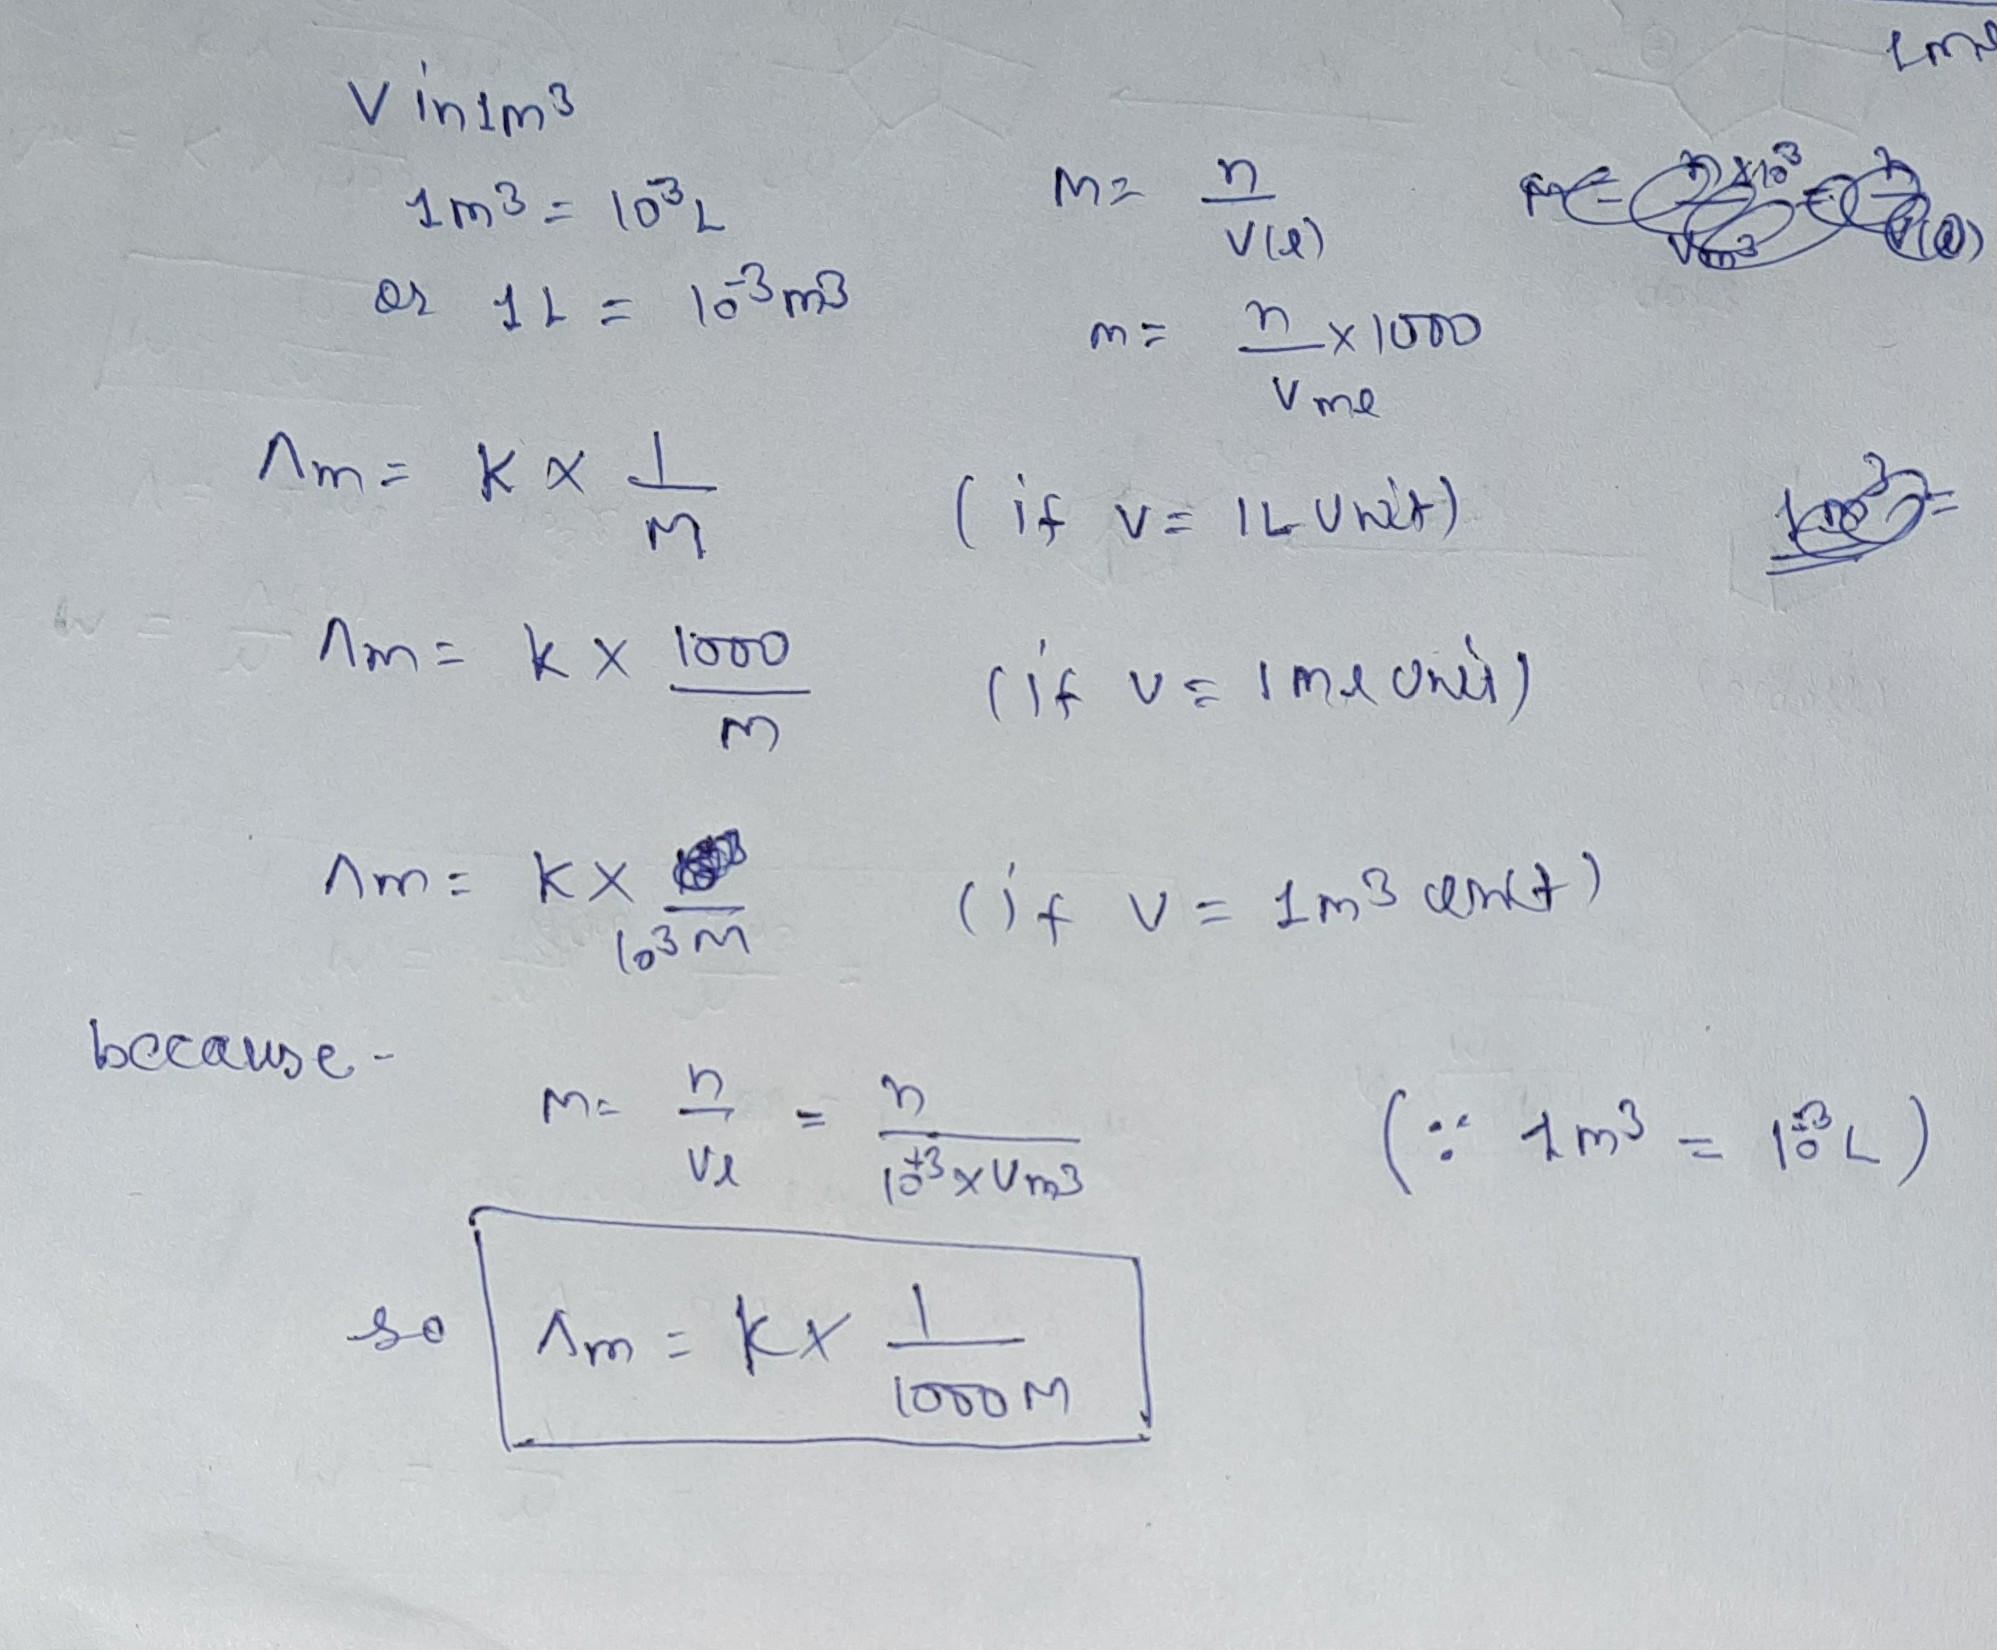 V in 1m³
1m³ = 10⁻³L
or 1L = 10⁻³m³
M = n/V(l)
m = n/Vml × 1000
Λm = K × 1/M (if V = 1L Unit)
Λm = K × 1000/M (if V = 1ml Unit)
Λm = K × /10³M (if V = 1m³ unit)
because -
M = n/Vl = n/10⁺³×Vm³ (∵ 1m³ = 10⁺³L)
so Λm = K × 1/1000M